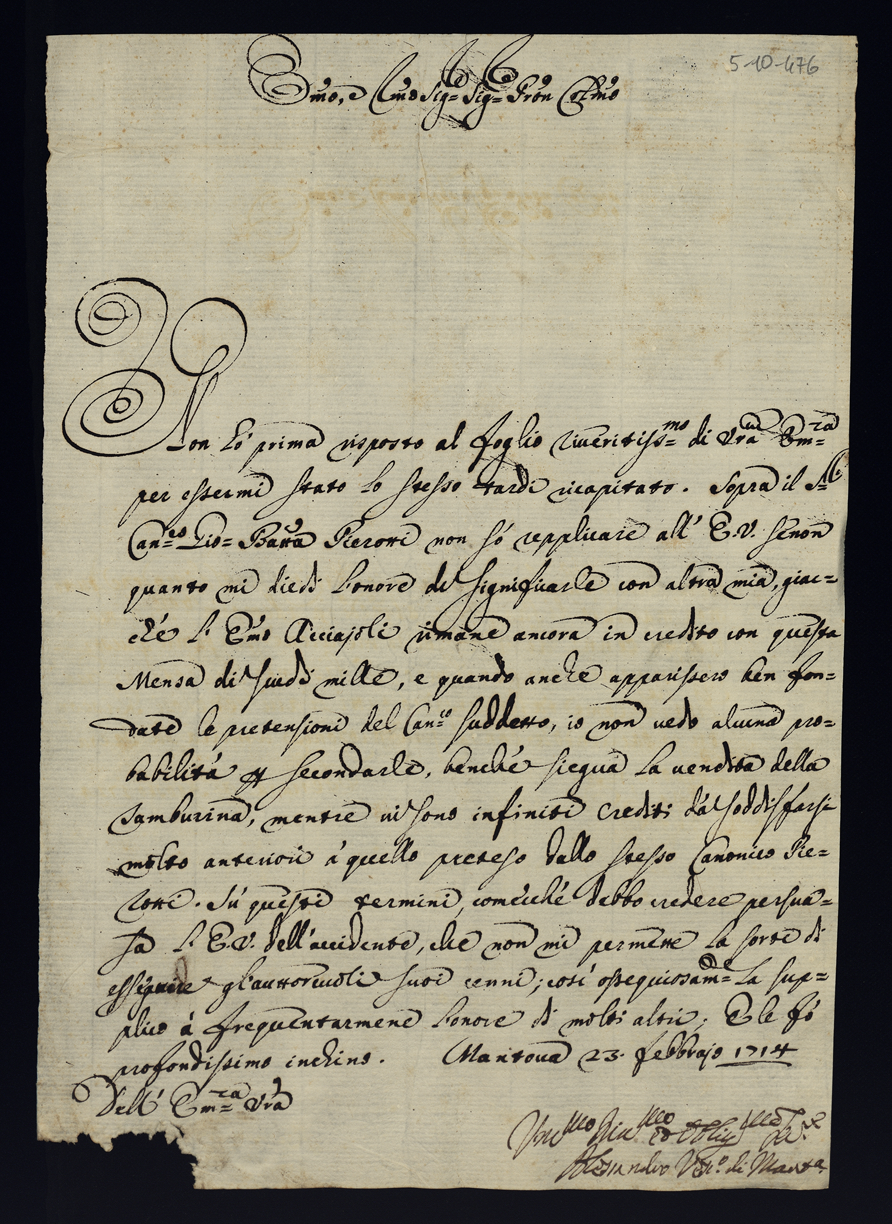 5-10-476
Emo, e Rmo Sig.re Sig.re Pron Colmo
Non hò prima risposto al foglio riueritiss.mo di Vrã Em.za
per essermi stato lo stesso tardi ricapitato. Sopra il
Can.co Gio: Batta Pierotti non sò repplicare all'E.V. senon
quanto mi diedi l'onore di significarle con altra mia, giac=
chè l'Emo Acciajoli rimane ancora in credito con questa
Mensa di Scudi mille, e quando anche apparissero ben fon=
date le pretensioni del Can.co suddetto, io non uedo alcuna pro=
babilità secondarle, benche siegua la uendita della
Tamburina, mentre ui sono infiniti Crediti dà soddisfarsi
molto anteriori à quello preteso dallo stesso Canonico Pie=
rotti. Sù questi termini, comecche debbo credere persua=
sa l'E.V. dell'accidente, che non mi permette la sorte di
esseguire gl'auttoreuoli suoi cenni; così ossequiosam.te la sup=
plico à frequentarmene l'onore di molti altri; E le fò
profondissimo inchino. Mantoua 23. Febbrajo 1714
Dell' Em.za Vrã
Alessandro Ves.o di Manta